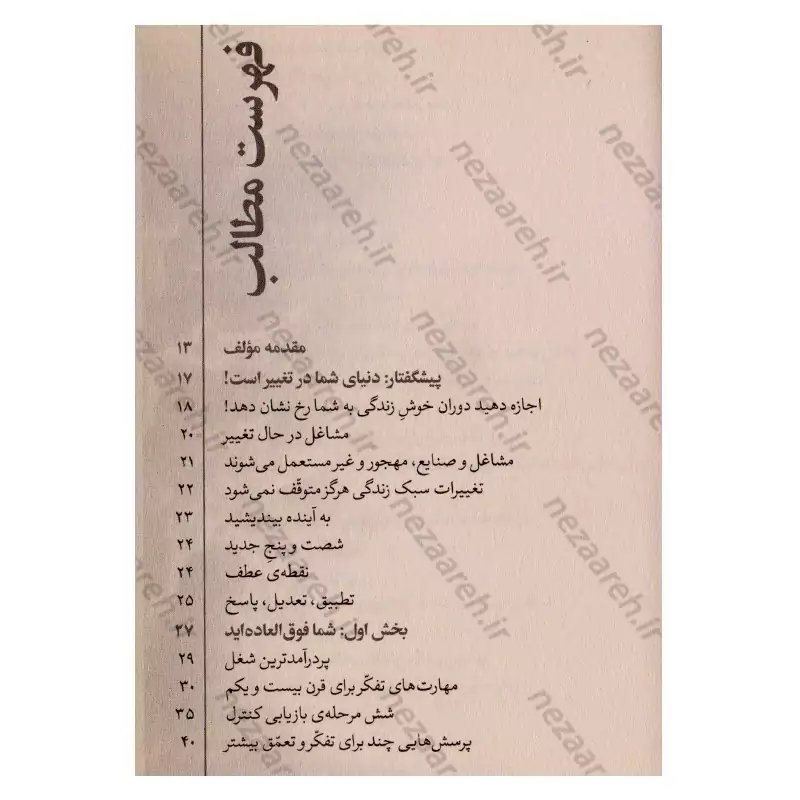 فهرست مطالب
مقدمه مؤلف ۱۳
پیشگفتار: دنیای شما در تغییر است! ۱۷
اجازه دهید دوران خوشِ زندگی به شما رخ نشان دهد! ۱۸
مشاغل در حال تغییر ۲۰
مشاغل و صنایع، مهجور و غیر مستعمل می‌شوند ۲۱
تغییرات سبک زندگی هرگز متوقّف نمی‌شود ۲۲
به آینده بیندیشید ۲۳
شصت و پنجِ جدید ۲۴
نقطه‌ی عطف ۲۴
تطبیق، تعدیل، پاسخ ۲۵
بخش اول: شما فوق‌العاده‌اید ۲۷
پردرآمدترین شغل ۲۹
مهارت‌های تفکّر برای قرن بیست و یکم ۳۰
شش مرحله‌ی بازیابی کنترل ۳۵
پرسش‌هایی چند برای تفکّر و تعمّق بیشتر ۴۰
nezaareh.ir